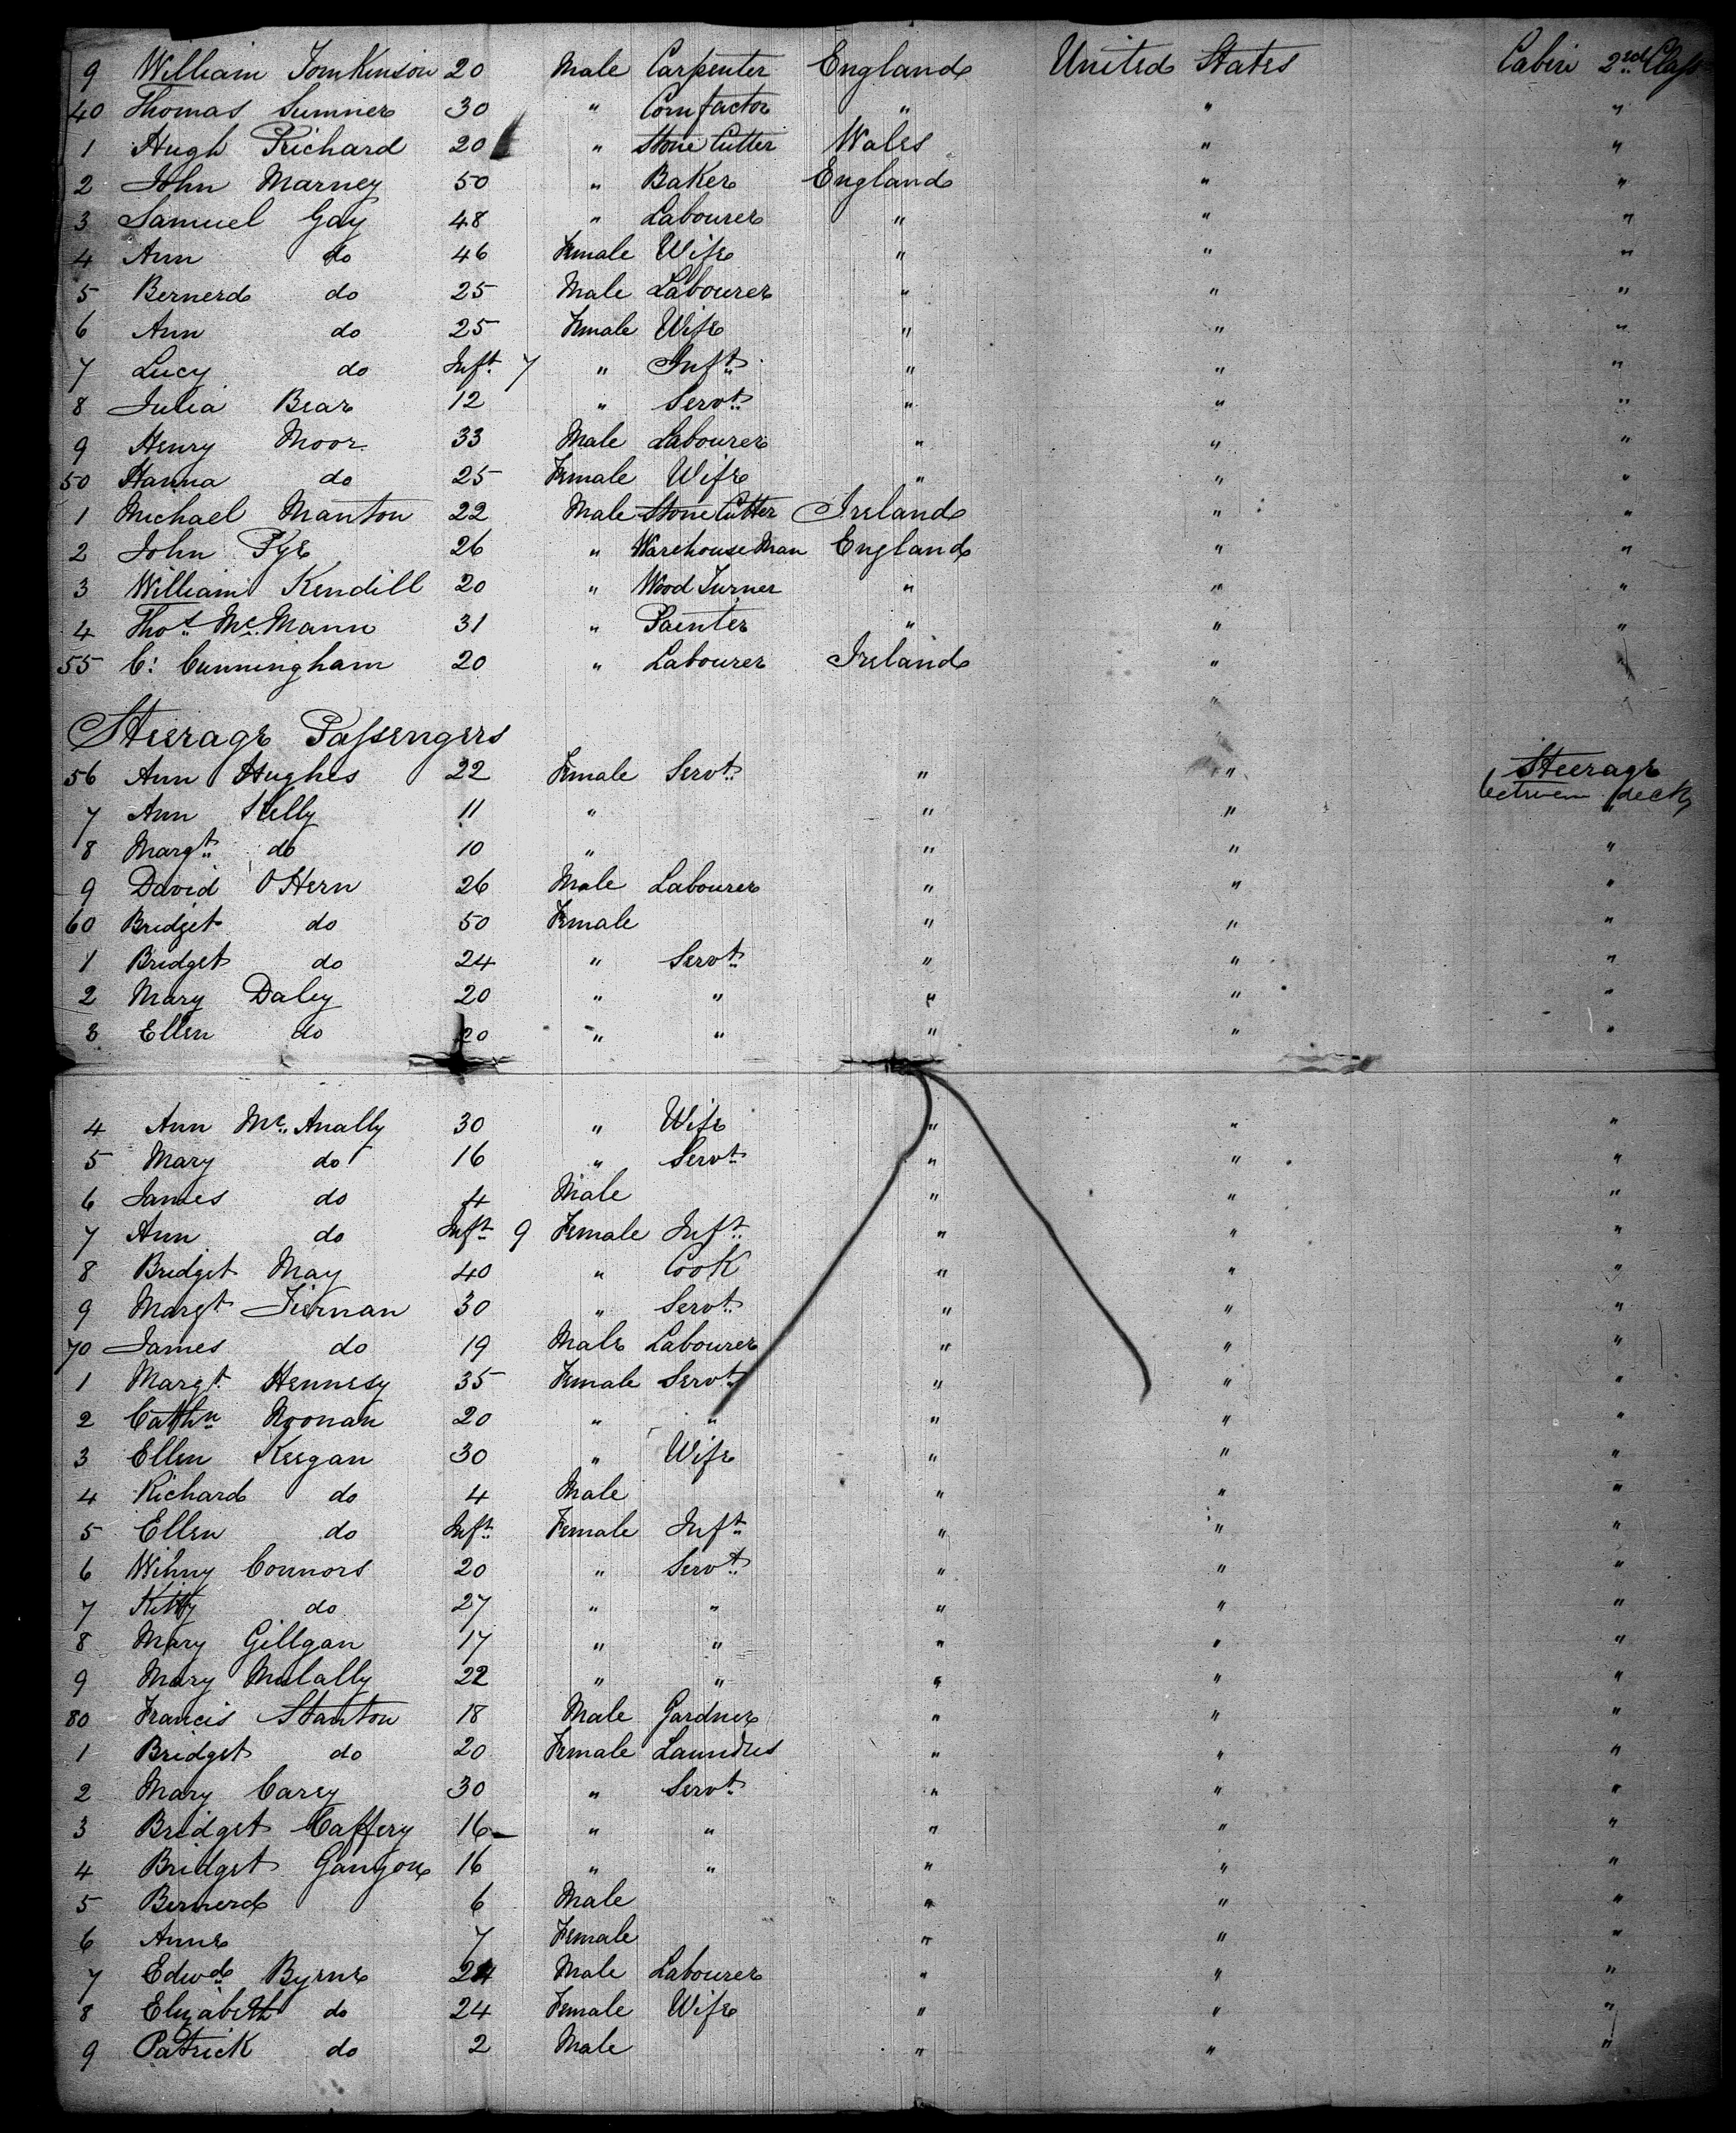 9 William Tomkinson 20 Male Carpenter England United States Cabin 2nd Class
40 Thomas Sumner 30 " Cornfactor " " "
1 Hugh Prichard 20 " Stone Cutter Wales " "
2 John Marney 50 " Baker England " "
3 Samuel Gay 48 " Labourer " " "
4 Ann do 46 Female Wife " " "
5 Bernerd do 25 Male Labourer " " "
6 Ann do 25 Female Wife " " "
7 Lucy do Inft. 7 " Inft. " " "
8 Julia Bear 12 " Servt. " " "
9 Henry Moor 33 Male Labourer " " "
50 Hanna do 25 Female Wife " " "
1 Michael Manton 22 Male Stone Cutter Ireland " "
2 John Pye 26 " Warehouse Man England " "
3 William Kendill 20 " Wood Turner " " "
4 Thos. Mc. Mann 31 " Painter " " "
55 C: Cunningham 20 " Labourer Ireland " "
" "
Steerage Passengers
56 Ann Hughes 22 Female Servt. " " Steerage
between decks
7 Ann Kelly 11 " " " "
8 Margt. do 10 " " " "
9 David O Hern 26 Male Labourer " " "
60 Bridget do 50 Female " " "
1 Bridget do 24 " Servt. " " "
2 Mary Daley 20 " " " " "
3 Ellen do 20 " " " " "
4 Ann Mc. Anally 30 " Wife " " "
5 Mary do 16 " Servt. " " "
6 James do 4 Male " " "
7 Ann do Inft. 9 Female Inft. " " "
8 Bridget May 40 " Cook " " "
9 Margt. Tiernan 30 " Servt. " " "
70 James do 19 Male Labourer " " "
1 Margt. Hennesy 35 Female Servt. " " "
2 Cathn. Noonan 20 " " " " "
3 Ellen Keegan 30 " Wife " " "
4 Richard do 4 Male " " "
5 Ellen do Inft. Female Inft. " " "
6 Winny Connors 20 " Servt. " " "
7 Kitty do 27 " " " " "
8 Mary Gillgan 17 " " " " "
9 Mary Mulally 22 " " " " "
80 Francis Stanton 18 Male Gardner " " "
1 Bridget do 20 Female Laundres " " "
2 Mary Carey 30 " Servt. " " "
3 Bridget Caffery 16 " " " " "
4 Bridget 16 " " " " "
5 Bernerd 6 Male " " "
6 Anne 7 Female " " "
7 Edwd. Byrne 24 Male Labourer " " "
8 Elizabeth do 24 Female Wife " " "
9 Patrick do 2 Male " " "